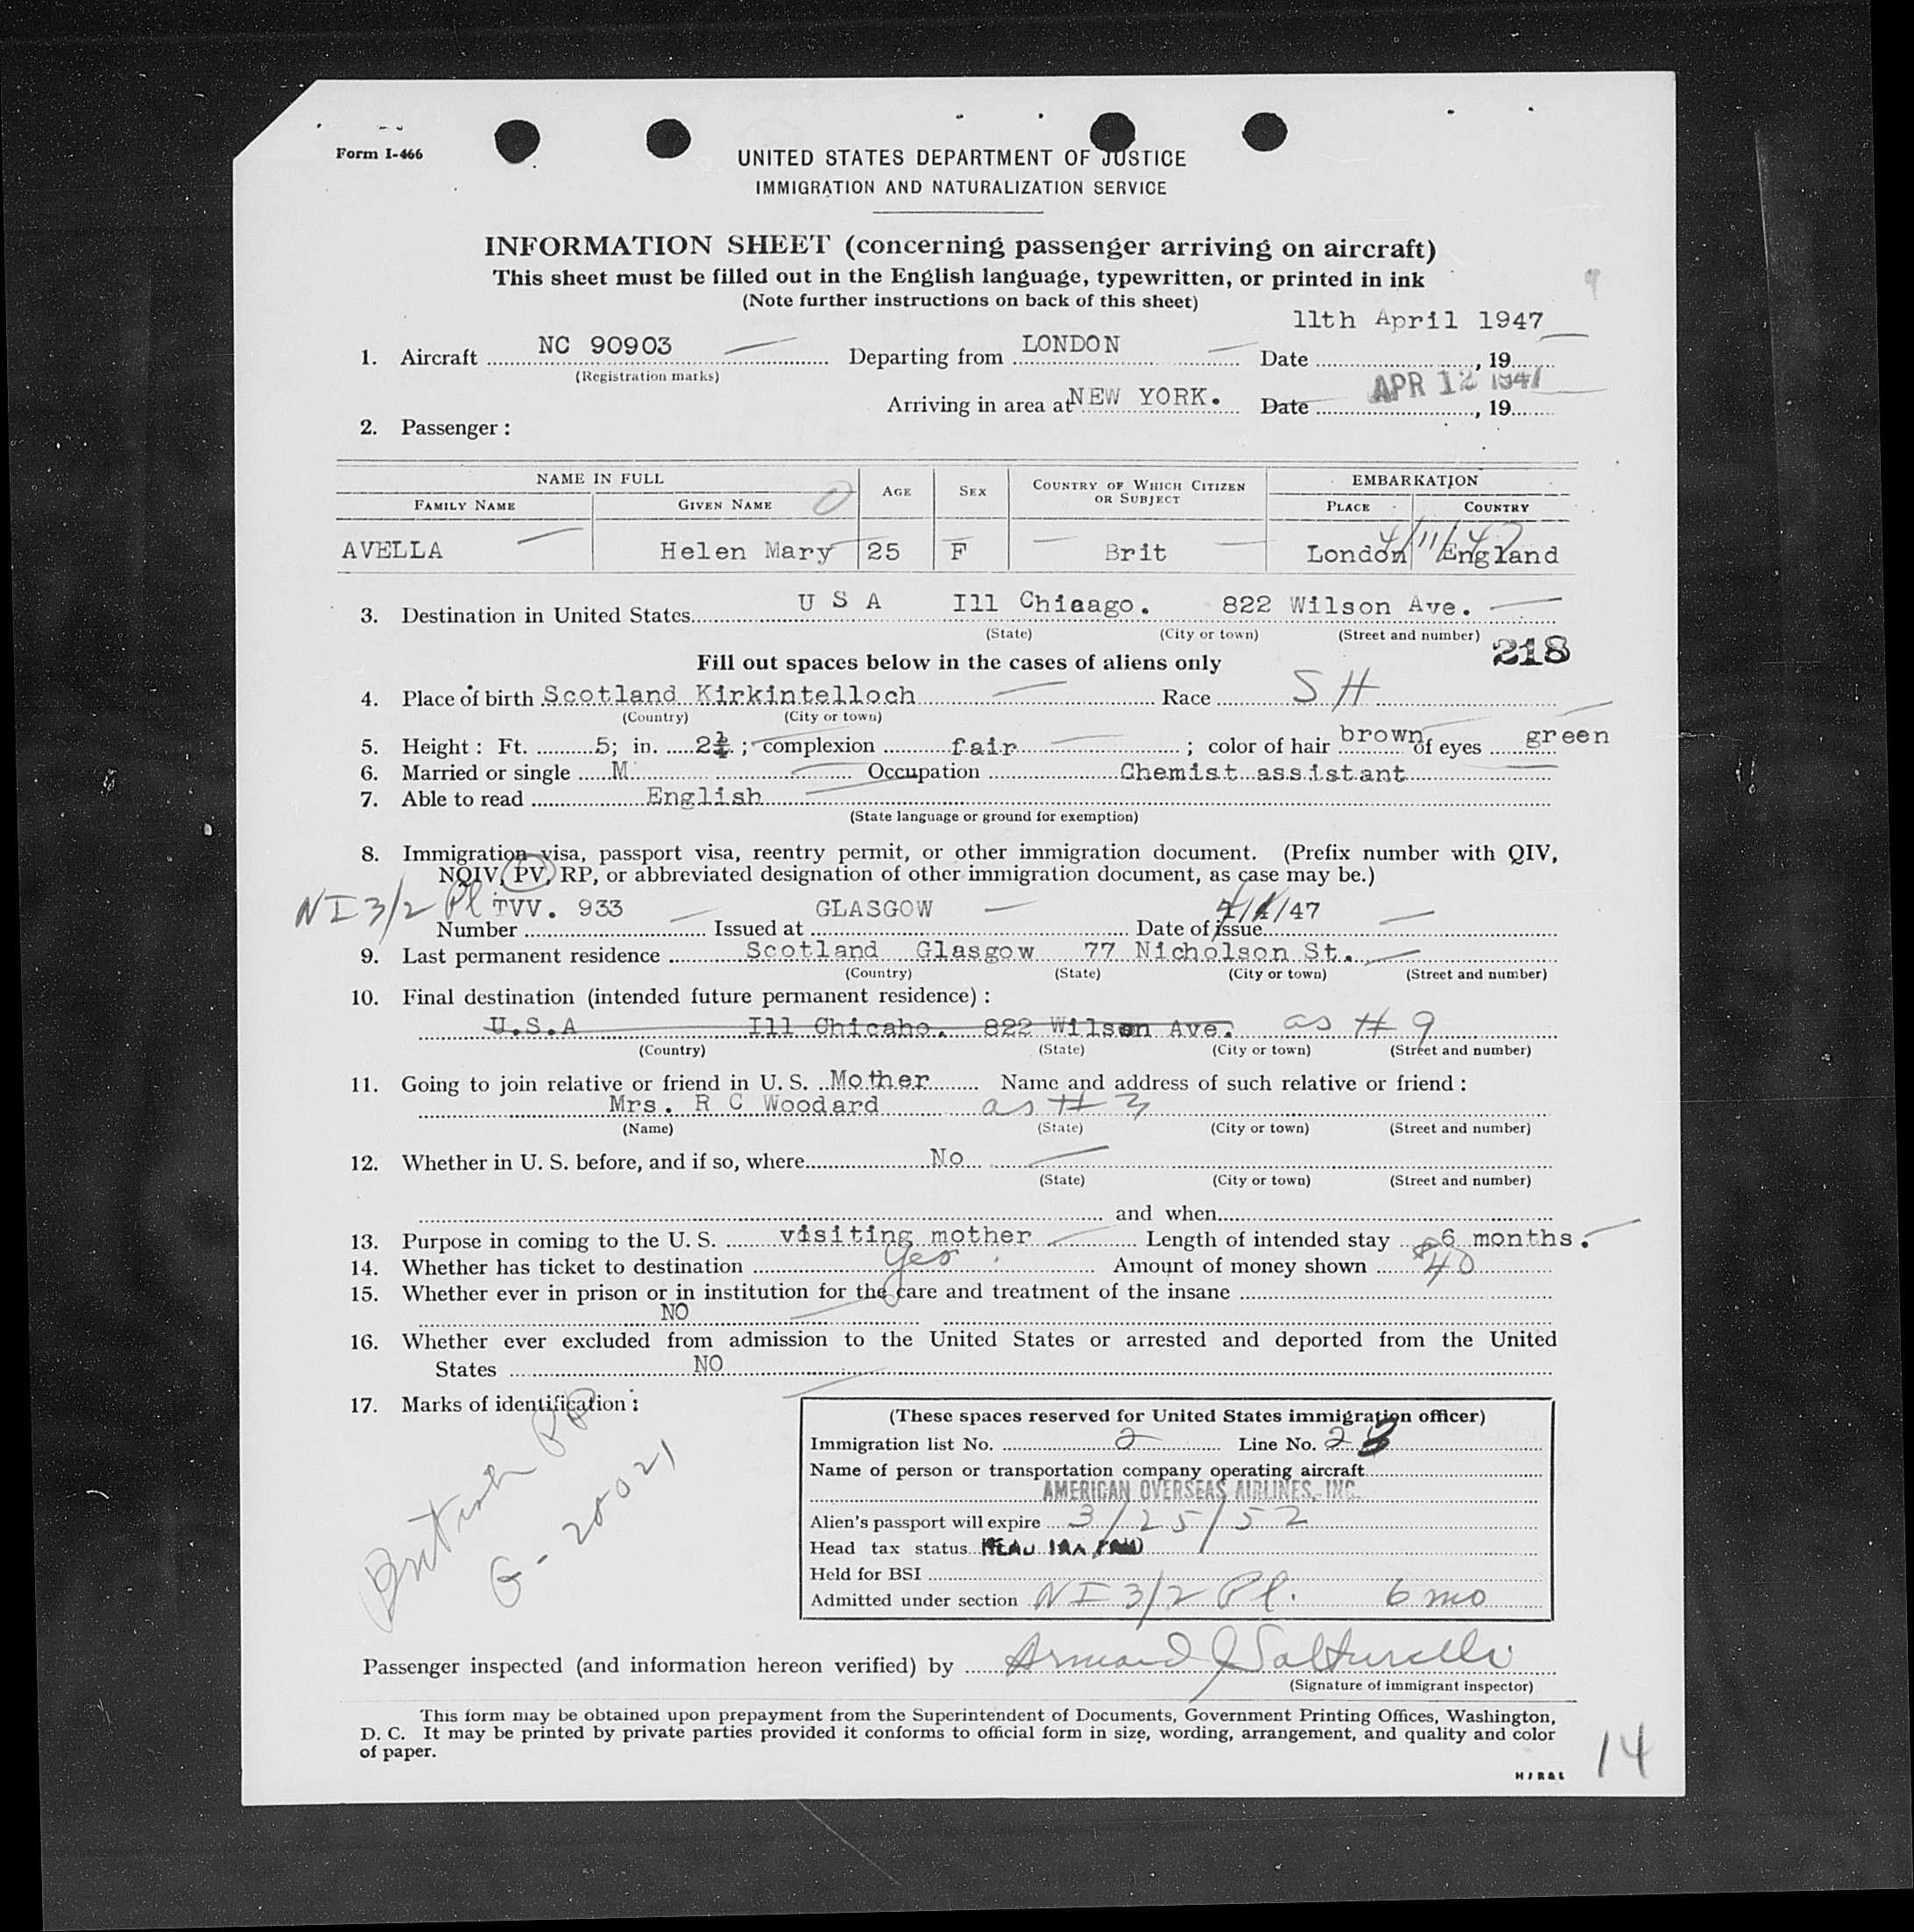 Form I-466
UNITED STATES DEPARTMENT OF JUSTICE
IMMIGRATION AND NATURALIZATION SERVICE
INFORMATION SHEET (concerning passenger arriving on aircraft)
This sheet must be filled out in the English language, typewritten, or printed in ink
(Note further instructions on back of this sheet)
11th April 1947
1. Aircraft NC 90903 Departing from LONDON Date , 19
(Registration marks)
Arriving in area at NEW YORK. Date APR 12 1947 , 19
2. Passenger:
NAME IN FULL AGE SEX COUNTRY OF WHICH CITIZEN OR SUBJECT EMBARKATION
FAMILY NAME GIVEN NAME PLACE COUNTRY
4/11/47
AVELLA Helen Mary 25 F Brit London England
3. Destination in United States U S A Ill Chiaago. 822 Wilson Ave.
(State) (City or town) (Street and number)
218
Fill out spaces below in the cases of aliens only
4. Place of birth Scotland Kirkintelloch Race S H
(Country) (City or town)
5. Height: Ft. 5; in. 2 ; complexion fair ; color of hair brown of eyes green
6. Married or single M Occupation Chemist assistant
7. Able to read English
(State language or ground for exemption)
8. Immigration visa, passport visa, reentry permit, or other immigration document. (Prefix number with QIV,
NQIV, PV, RP, or abbreviated designation of other immigration document, as case may be.)
NI 3/2 Pl TVV. 933 GLASGOW /47
Number Issued at Date of issue
9. Last permanent residence Scotland Glasgow 77 Nicholson St.
(Country) (State) (City or town) (Street and number)
10. Final destination (intended future permanent residence):
U.S.A Ill Chicaho. 822 Wilson Ave. as # 9
(Country) (State) (City or town) (Street and number)
11. Going to join relative or friend in U. S. Mother Name and address of such relative or friend:
Mrs. R C Woodard as # 3
(Name) (State) (City or town) (Street and number)
12. Whether in U. S. before, and if so, where No
(State) (City or town) (Street and number)
and when
13. Purpose in coming to the U. S. visiting mother Length of intended stay 6 months.
14. Whether has ticket to destination Yes Amount of money shown $40
15. Whether ever in prison or in institution for the care and treatment of the insane
NO
16. Whether ever excluded from admission to the United States or arrested and deported from the United
States NO
17. Marks of identification:
British PP
G-20021
(These spaces reserved for United States immigration officer)
Immigration list No. 2 Line No. 2
Name of person or transportation company operating aircraft
AMERICAN OVERSEAS AIRLINES, INC.
Alien's passport will expire 3/25/52
Head tax status
Held for BSI
Admitted under section NI 3/2 Pl. 6 mo
Passenger inspected (and information hereon verified) by Armand J Salturelli
(Signature of immigrant inspector)
This form may be obtained upon prepayment from the Superintendent of Documents, Government Printing Offices, Washington,
D. C. It may be printed by private parties provided it conforms to official form in size, wording, arrangement, and quality and color
of paper.
14